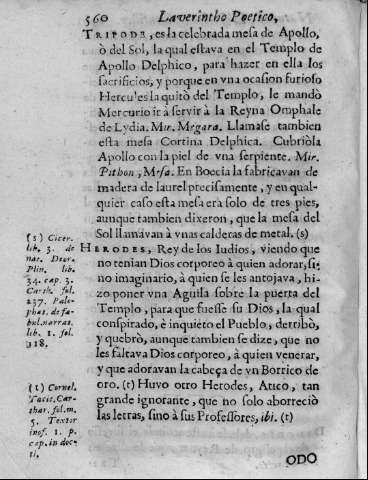 560 Laverintho Poetico,
TRIPODE, es la celebrada mesa de Apollo,
ò del Sol, la qual estava en el Templo de
Apollo Delphico, para hazer en ella los
sacrificios, y porque en vna ocasion furioso
Hercules la quitò del Templo, le mandò
Mercurio ir à servir à la Reyna Omphale
de Lydia. Mir. Megara. Llamase tambien
esta mesa Cortina Delphica. Cubriòla
Apollo con la piel de vna serpiente. Mir.
Pithon, Mesa. En Boecia la fabricavan de
madera de laurel precisamente, y en qual-
quier caso esta mesa era solo de tres pies,
aunque tambien dixeron, que la mesa del
Sol llamàvan à vnas calderas de metal. (s)
HERODES, Rey de los Iudios, viendo que
no tenian Dios corporeo à quien adorar, si-
no imaginario, à quien se les antojava, hi-
zo poner vna Aguila sobre la puerta del
Templo, para que fuesse su Dios, la qual
conspirado, è inquieto el Pueblo, derribò,
y quebrò, aunque tambien se dize, que no
les faltava Dios corporeo, à quien venerar,
y que adoravan la cabeça de vn Borrico de
oro. (t) Huvo otro Herodes, Atico, tan
grande ignorante, que no solo aborreciò
las letras, sino à sus Professores, ibi. (t)
ODO
(s) Cicer.
lib. 3. de
nat. Deor.
Plin. lib.
34. cap. 3.
Carth. fol.
237. Pale-
phat. de fa-
bul. narrat.
lib. 1. fol.
118.
(t) Cornel.
Tacit. Car-
thar. fol. m.
5. Textor
inof. 1. p.
cap. in doc-
ti.